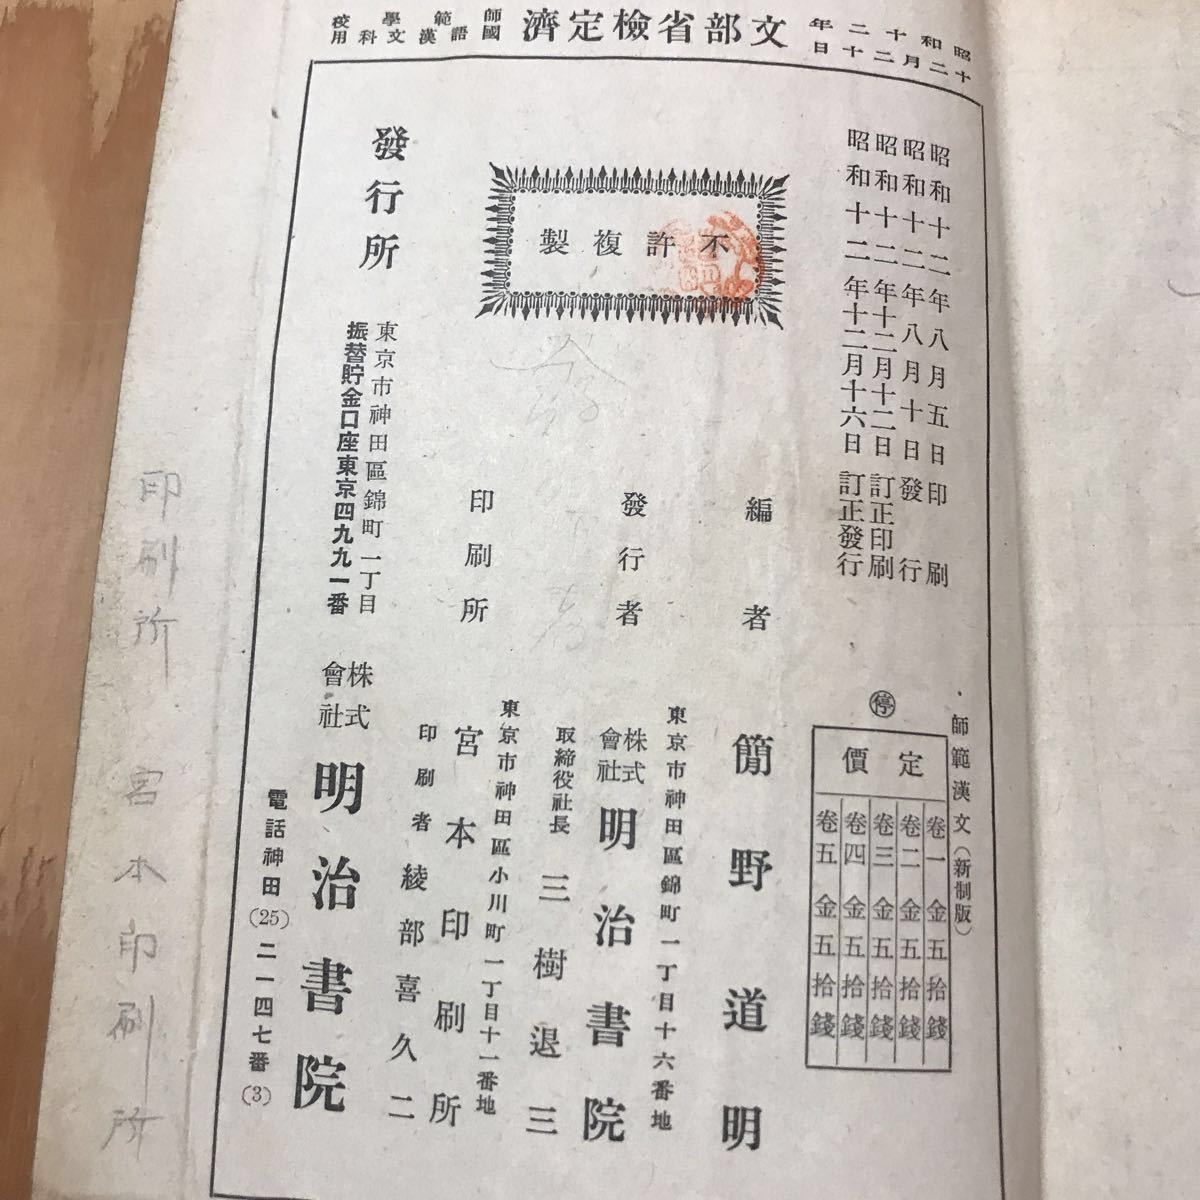 昭和十二年
十二月二十日
文部省檢定濟
師範學校
國語漢文科用
昭和十二年八月五日印刷
昭和十二年八月十日發行
昭和十二年十二月十二日訂正印刷
昭和十二年十二月十六日訂正發行
不許複製
師範漢文（新制版）
停
定價
卷一 金五拾錢
卷二 金五拾錢
卷三 金五拾錢
卷四 金五拾錢
卷五 金五拾錢
編者 簡野道明
東京市神田區錦町一丁目十六番地
發行者 株式會社 明治書院
取締役社長 三樹退三
東京市神田區小川町一丁目十一番地
印刷所 宮本印刷所
印刷者 綾部喜久二
發行所
東京市神田區錦町一丁目
振替貯金口座東京四九九一番
株式會社 明治書院
電話神田(25)二一四七番(3)
印刷所 宮本印刷所